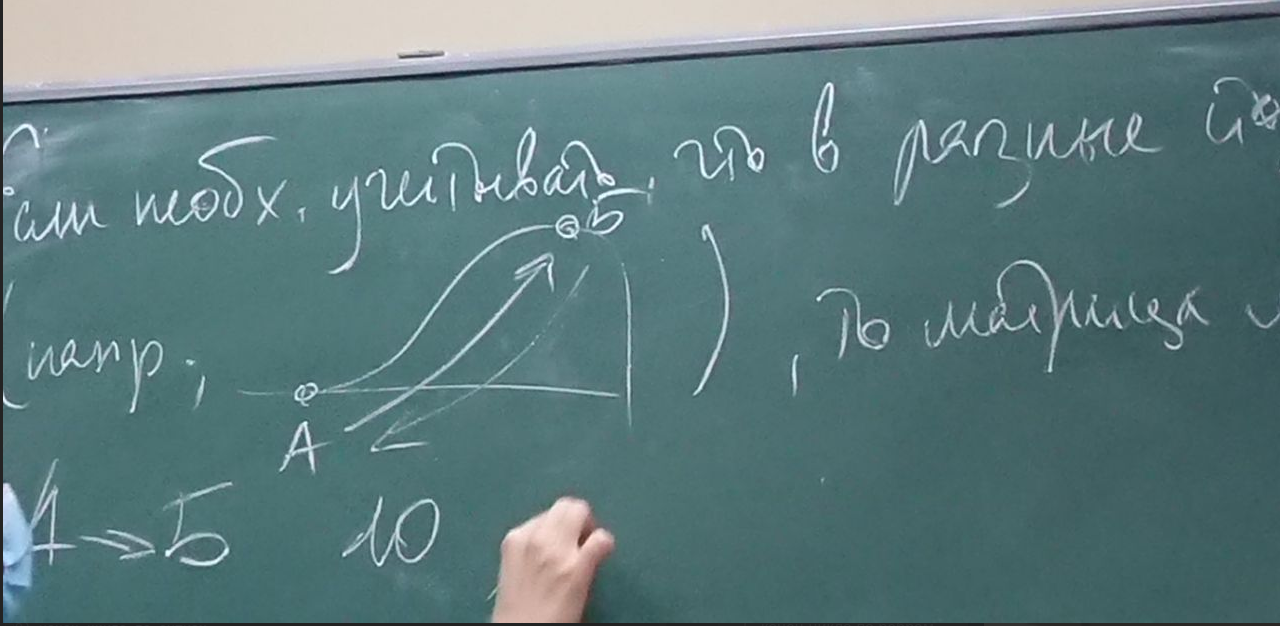 Если необх. учитывать, что в разные
Б
(напр.,
), то матрица
А
А → Б 10